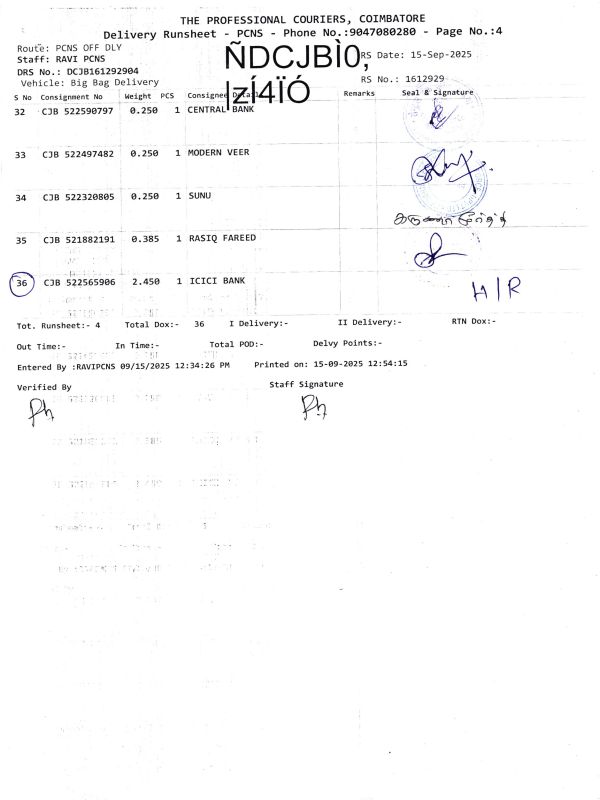 THE PROFESSIONAL COURIERS, COIMBATORE
Delivery Runsheet - PCNS - Phone No.:9047080280 - Page No.:4
Route: PCNS OFF DLY
ÑDCJBÌ0, RS Date: 15-Sep-2025
Staff: RAVI PCNS
DRS No.: DCJB161292904
Vehicle: Big Bag Delivery
|zÍ4ÏÓ RS No.: 1612929
S No Consignment No Weight PCS Consignee Detail Remarks Seal & Signature
32 CJB 522590797 0.250 1 CENTRAL BANK
33 CJB 522497482 0.250 1 MODERN VEER
34 CJB 522320805 0.250 1 SUNU
35 CJB 521882191 0.385 1 RASIQ FAREED
36 CJB 522565906 2.450 1 ICICI BANK H/R
Tot. Runsheet:- 4 Total Dox:- 36 I Delivery:- II Delivery:- RTN Dox:-
Out Time:- In Time:- Total POD:- Delvy Points:-
Entered By :RAVIPCNS 09/15/2025 12:34:26 PM Printed on: 15-09-2025 12:54:15
Verified By Staff Signature